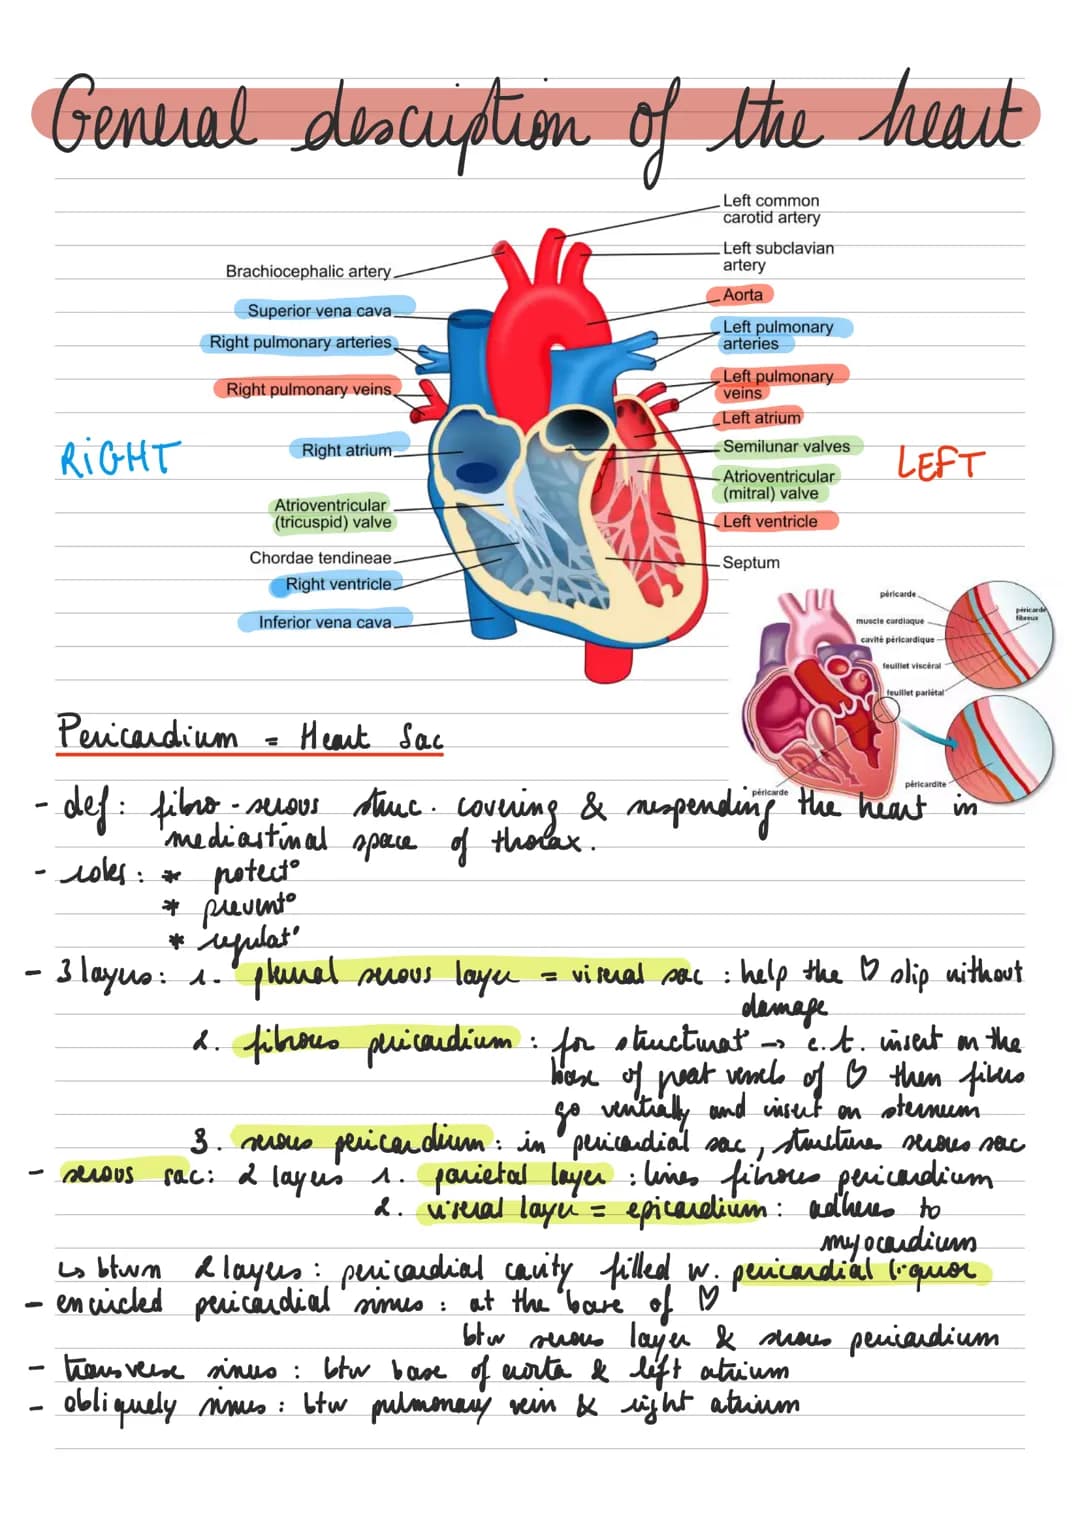 General description of the heart
Left common
carotid artery
Left subclavian
artery
Brachiocephalic artery
Aorta
Superior vena cava
Left pulmonary
arteries
Right pulmonary arteries
Left pulmonary
veins
Right pulmonary veins
Left atrium
RiGHT
Right atrium
Semilunar valves
LEFT
Atrioventricular
(mitral) valve
Atrioventricular
(tricuspid) valve
Left ventricle
Chordae tendineae
Septum
Right ventricle
Inferior vena cava
péricarde
péricarde
fibreux
muscle cardiaque
cavité péricardique
feuillet viscéral
feuillet pariétal
péricardite
péricarde
Pericardium = Heart Sac
- def: fibro-serous struc. covering & suspending the heart in
mediastinal space of thorax.
- roles: * protect°
* prevent°
* regulat°
- 3 layers: 1. pleural serous layer = viseral sac : help the ♡ slip without
damage
2. fibrous pericardium : for structurat° → c.t. insert on the
base of great vessels of ♡ then fibers
go ventrally and insert on sternum
3. serous pericardium : in pericardial sac, structure serous sac
- serous sac: 2 layers 1. parietal layer : lines fibrous pericardium
2. viseral layer = epicardium : adheres to
myocardium
↳ btwn 2 layers : pericardial cavity filled w. pericardial liquor
- encircled pericardial sinus : at the base of ♡
btw serous layer & serous pericardium
- transverse sinus : btw base of aorta & left atrium
- obliquely sinus : btw pulmonary vein & right atrium